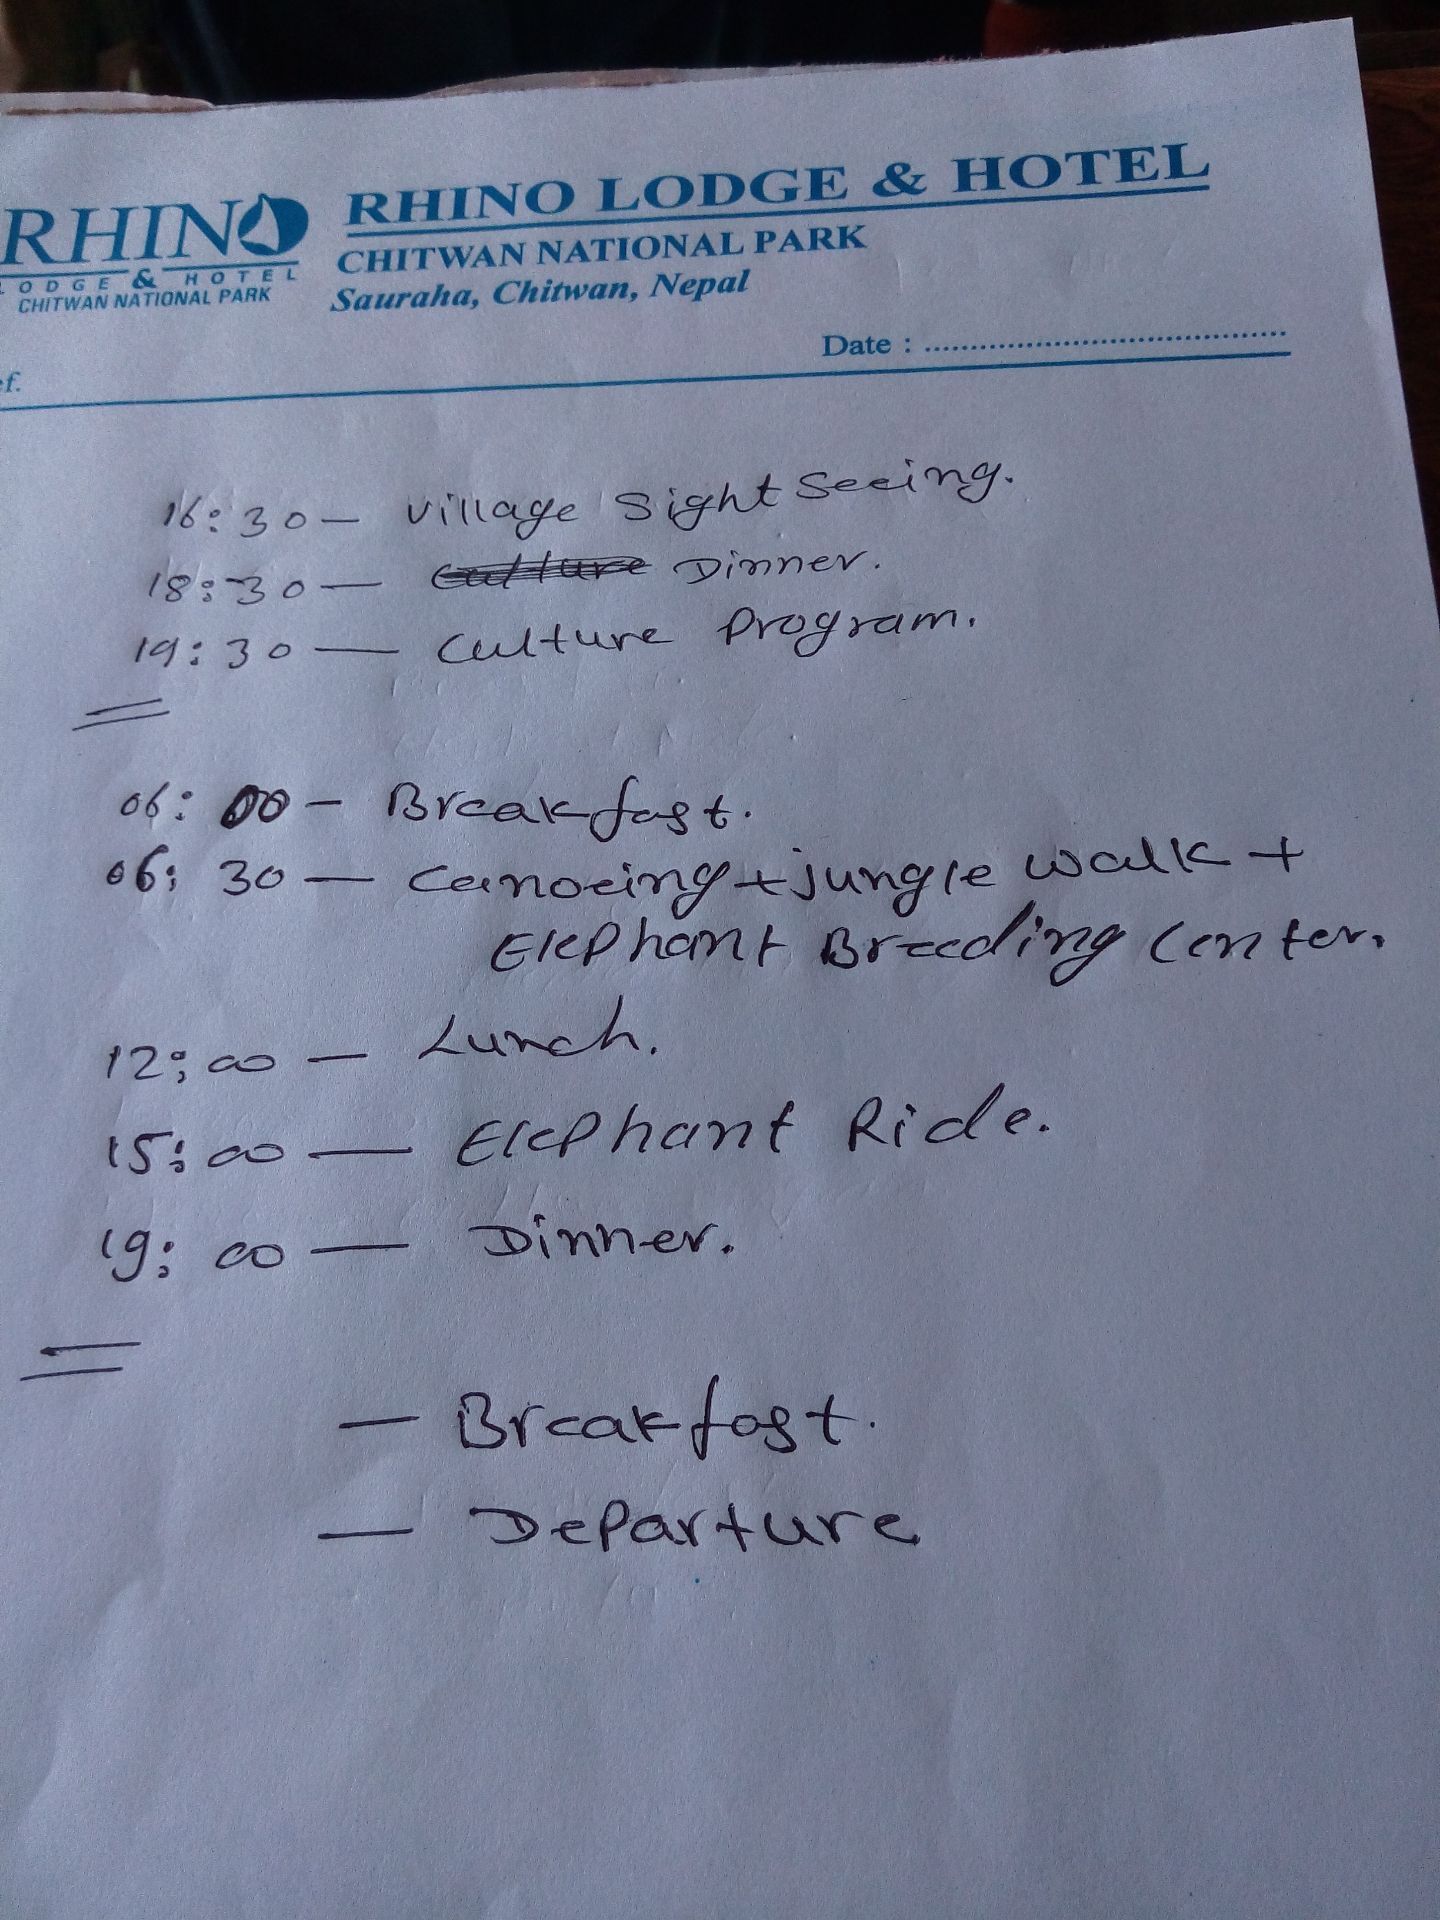 RHINO
LODGE & HOTEL
CHITWAN NATIONAL PARK
RHINO LODGE & HOTEL
CHITWAN NATIONAL PARK
Sauraha, Chitwan, Nepal
Date : ................................................
ef.
16:30 — Village Sight Seeing.
18:30 — Culture Dinner.
19:30 — Culture Program.
06:00 — Breakfast.
06:30 — Canoeing + jungle walk +
Elephant Breeding Center.
12:00 — Lunch.
15:00 — Elephant Ride.
19:00 — Dinner.
— Breakfast.
— Departure